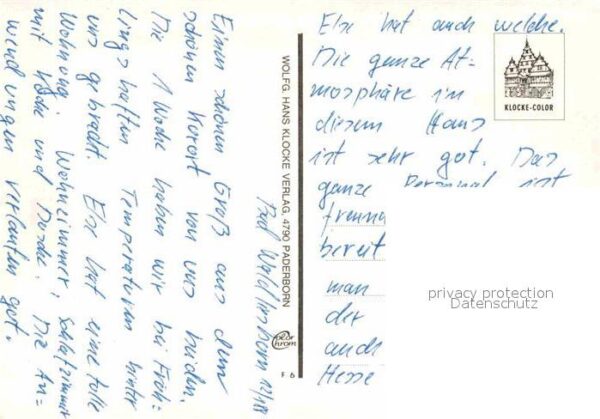 Bad Waldliesborn
Einen schönen Gruß aus dem
schönen Kurort von uns beiden.
Die 1. Woche haben wir bei Früh=
lingshaften Temperaturen hinter
uns gebracht. Else hat eine tolle
Wohnung. Wohnzimmer, Schlafzimmer
mit Küche und Dusche. Die An=
wendungen verlaufen gut.
Else hat auch welche.
Die ganze At=
mosphäre in
diesem Haus
ist sehr gut. Das
ganze Personal ist
bereit
man
der
auch
Hesse
WOLFG. HANS KLOCKE VERLAG, 4790 PADERBORN
color chrom
F 6
KLOCKE-COLOR
privacy protection
Datenschutz